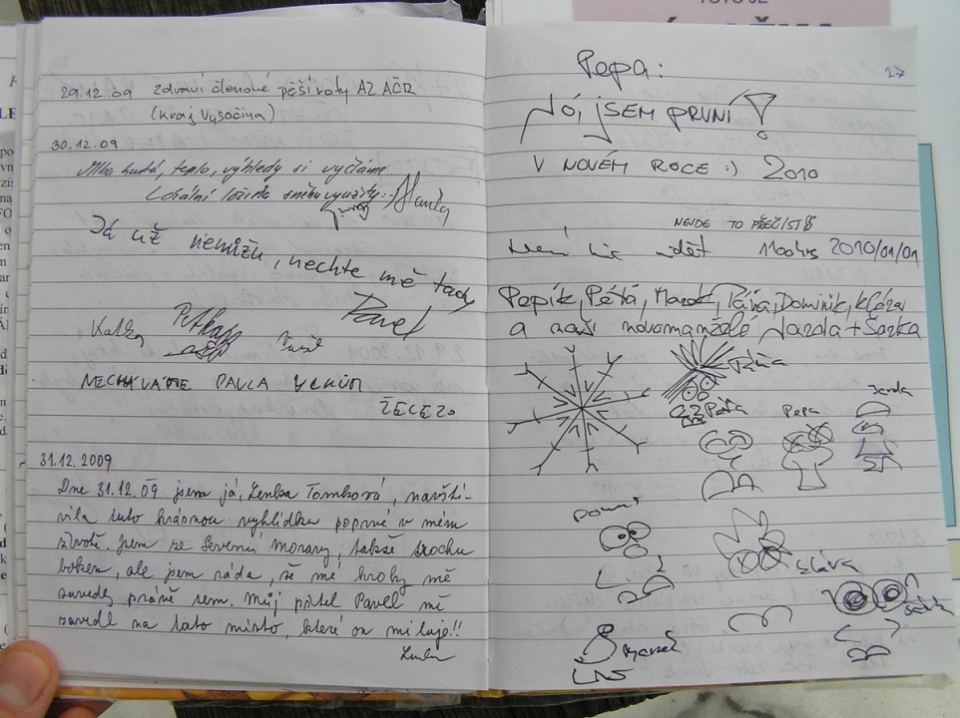 29.12.09 zdraví členové pěší roty AZ AČR
(kraj Vysočina)
30.12.09
Mlha hustá, teplo, výhledy si vyčítáme
Lokální ložiska sněhu využity.
Já už nemůžu, nechte mě tady
Pavel
Katka
NECHÁVÁME PAVLA
ŽELEZO
31.12.2009
Dne 31.12.09 jsem já, Lenka Tomková, navští-
vila tuto krásnou vyhlídku poprvé v mém
životě. Jsem ze Severní Moravy, takže trochu
bokem, ale jsem ráda, že mé kroky mě
zavedly právě sem. Můj přítel Pavel mě
zavedl na tato místo, které on miluje!!
Lenka
27
Pepa:
JÓ, JSEM PRVNÍ!
V NOVÉM ROCE :) 2010
NEJDE TO PŘEČÍST
Není nic vidět 1100hrs 2010/01/01
Pepík, Péťa, Marek, Pája, Dominik, Klára
a naši novomanželé Jarda + Šárka
Pája
Péťa
Pepa
Jarda
Domi
Klára
Šárka
Marek